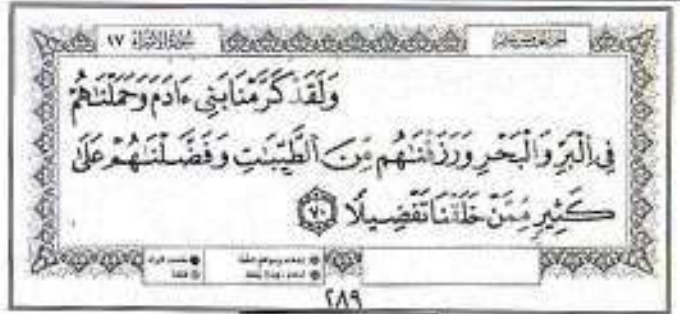 سُورَةُ الإِسْرَاء ١٧
وَلَقَدْ كَرَّمْنَا بَنِي ءَادَمَ وَحَمَلْنَٰهُمْ
فِي الْبَرِّ وَالْبَحْرِ وَرَزَقْنَٰهُم مِّنَ الطَّيِّبَٰتِ وَفَضَّلْنَٰهُمْ عَلَىٰ
كَثِيرٍ مِّمَّنْ خَلَقْنَا تَفْضِيلًا ٧٠
٢٨٩